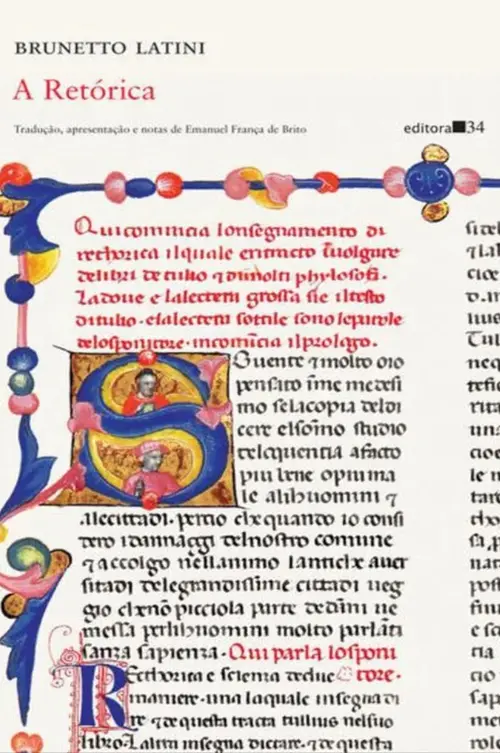 BRUNETTO LATINI
A Retórica
Tradução, apresentação e notas de Emanuel França de Brito
editora 34
Qui comincia lonsegnamento di
rechorica ilquale eritracto i uolgare
delibri de tulio ⁊ dimolti phylosofi.
Ladoue e lalectera grossa sie iltesto
ditulio. elalectera sottile sono leparole
delosponitore. incomīcia ilprolago.
Souente ⁊ molto oio
pensato īme medesi
mo se lacopia deldi
cere elsomo studio
delloquentia a facto
piu bene o piu ma
le alihuomini ⁊
alecittadi. percio che quando io consi
dero idannaggi delnostro comune
⁊ accolgo nellanimo lantiche auer
sitadi delegrandissime cittadi ueg
gio che non picciola parte dedāni ue
messa perlihuomini molto parlāti
sanza sapienza. Qui parla losponi
tore.
Recthorica e scienza dedue
maniere. una laquale insegna di
re ⁊ de questa tracta tullius nelsuo
libro. Laltra insegna dictare.